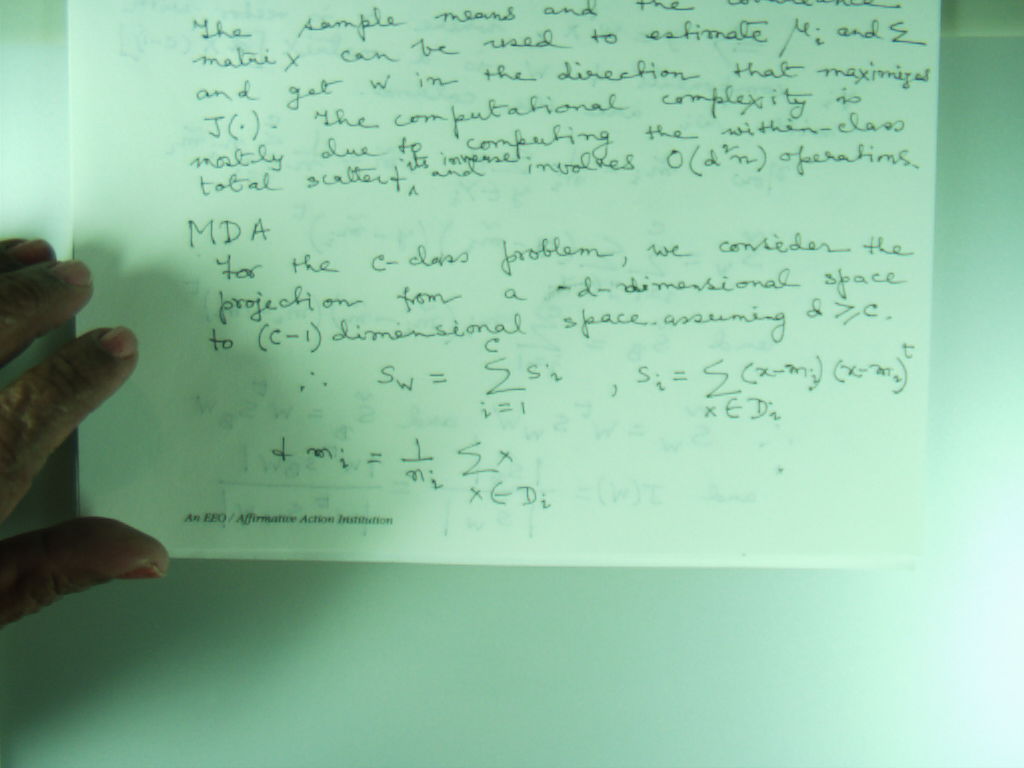 The sample means and the covariance
matrix can be used to estimate μi and Σ
and get w in the direction that maximizes
J(·). The computational complexity is
mostly due to computing the within-class
total scatter & its inverse and involves O(d²n) operations.
MDA
For the c-class problem, we consider the
projection from a -d-dimensional space
to (c-1) dimensional space assuming d ≥ c.
∴ Sw = Σ_{i=1}^{c} Si , Si = Σ_{x∈Di} (x-mi) (x-mi)^t
& mi = 1/ni Σ_{x∈Di} x
An EEO / Affirmative Action Institution